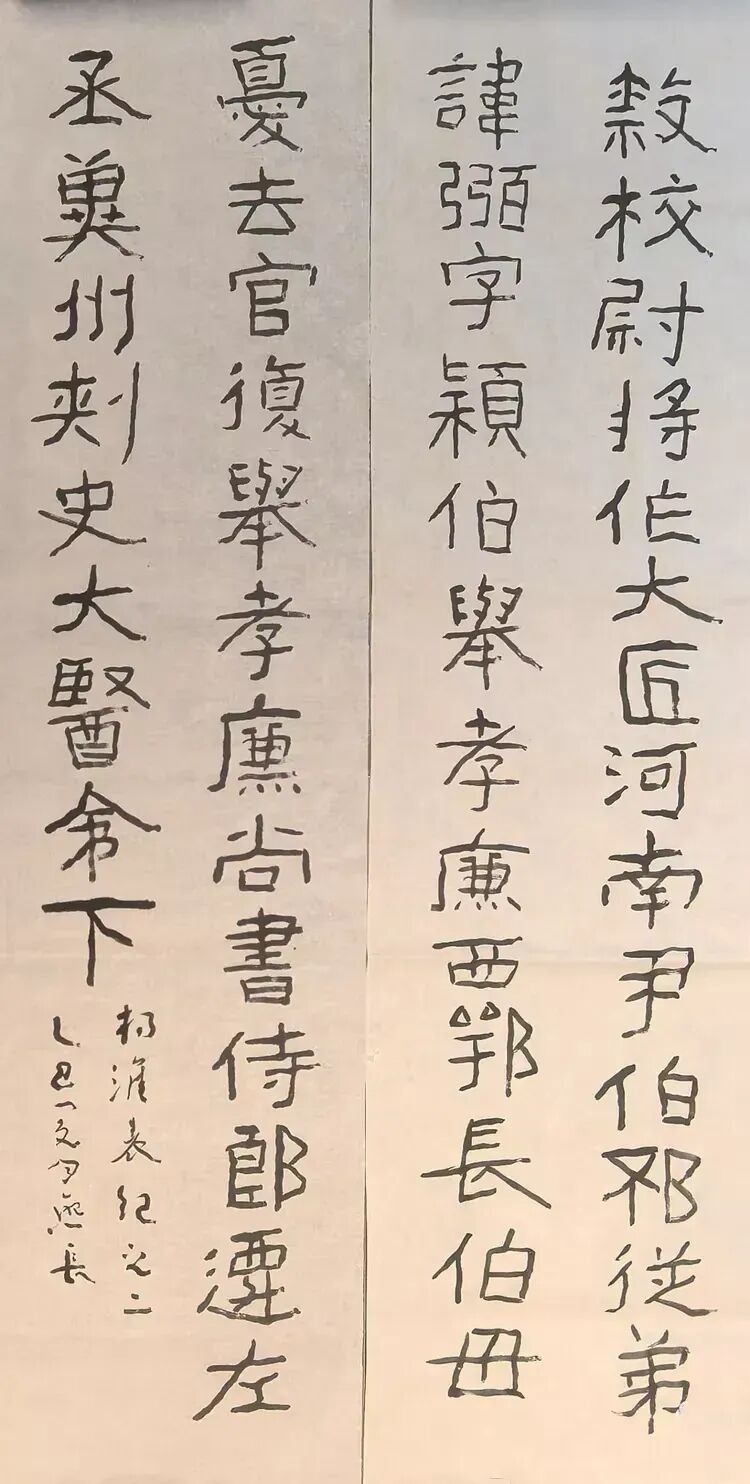 敎校尉將作大匠河南尹伯邳從弟
諱弼字穎伯舉孝廉西鄂長伯母
憂去官復舉孝廉尚書侍郎遷左
丞冀州刺史大醫令下
楊淮表紀之二
乙巳